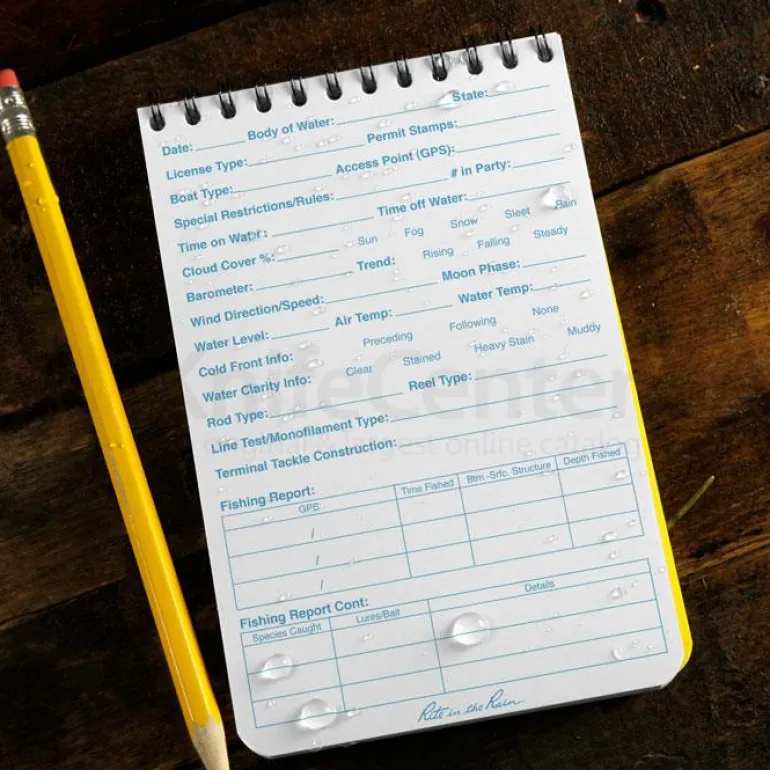 Date: Body of Water: State:
License Type: Permit Stamps:
Boat Type: Access Point (GPS):
Special Restrictions/Rules: # in Party:
Time on Water: Time off Water:
Cloud Cover %: Sun Fog Snow Sleet Rain
Barometer: Trend: Rising Falling Steady
Wind Direction/Speed: Moon Phase:
Water Level: Air Temp: Water Temp:
Cold Front Info: Preceding Following None
Water Clarity Info: Clear Stained Heavy Stain Muddy
Rod Type: Reel Type:
Line Test/Monofilament Type:
Terminal Tackle Construction:
Fishing Report:
GPS Time Fished Btm -Srfc. Structure Depth Fished
/
/
/
Fishing Report Cont:
Species Caught Lures/Bait Details
Rite in the Rain
KnifeCenter
original & largest online catalog